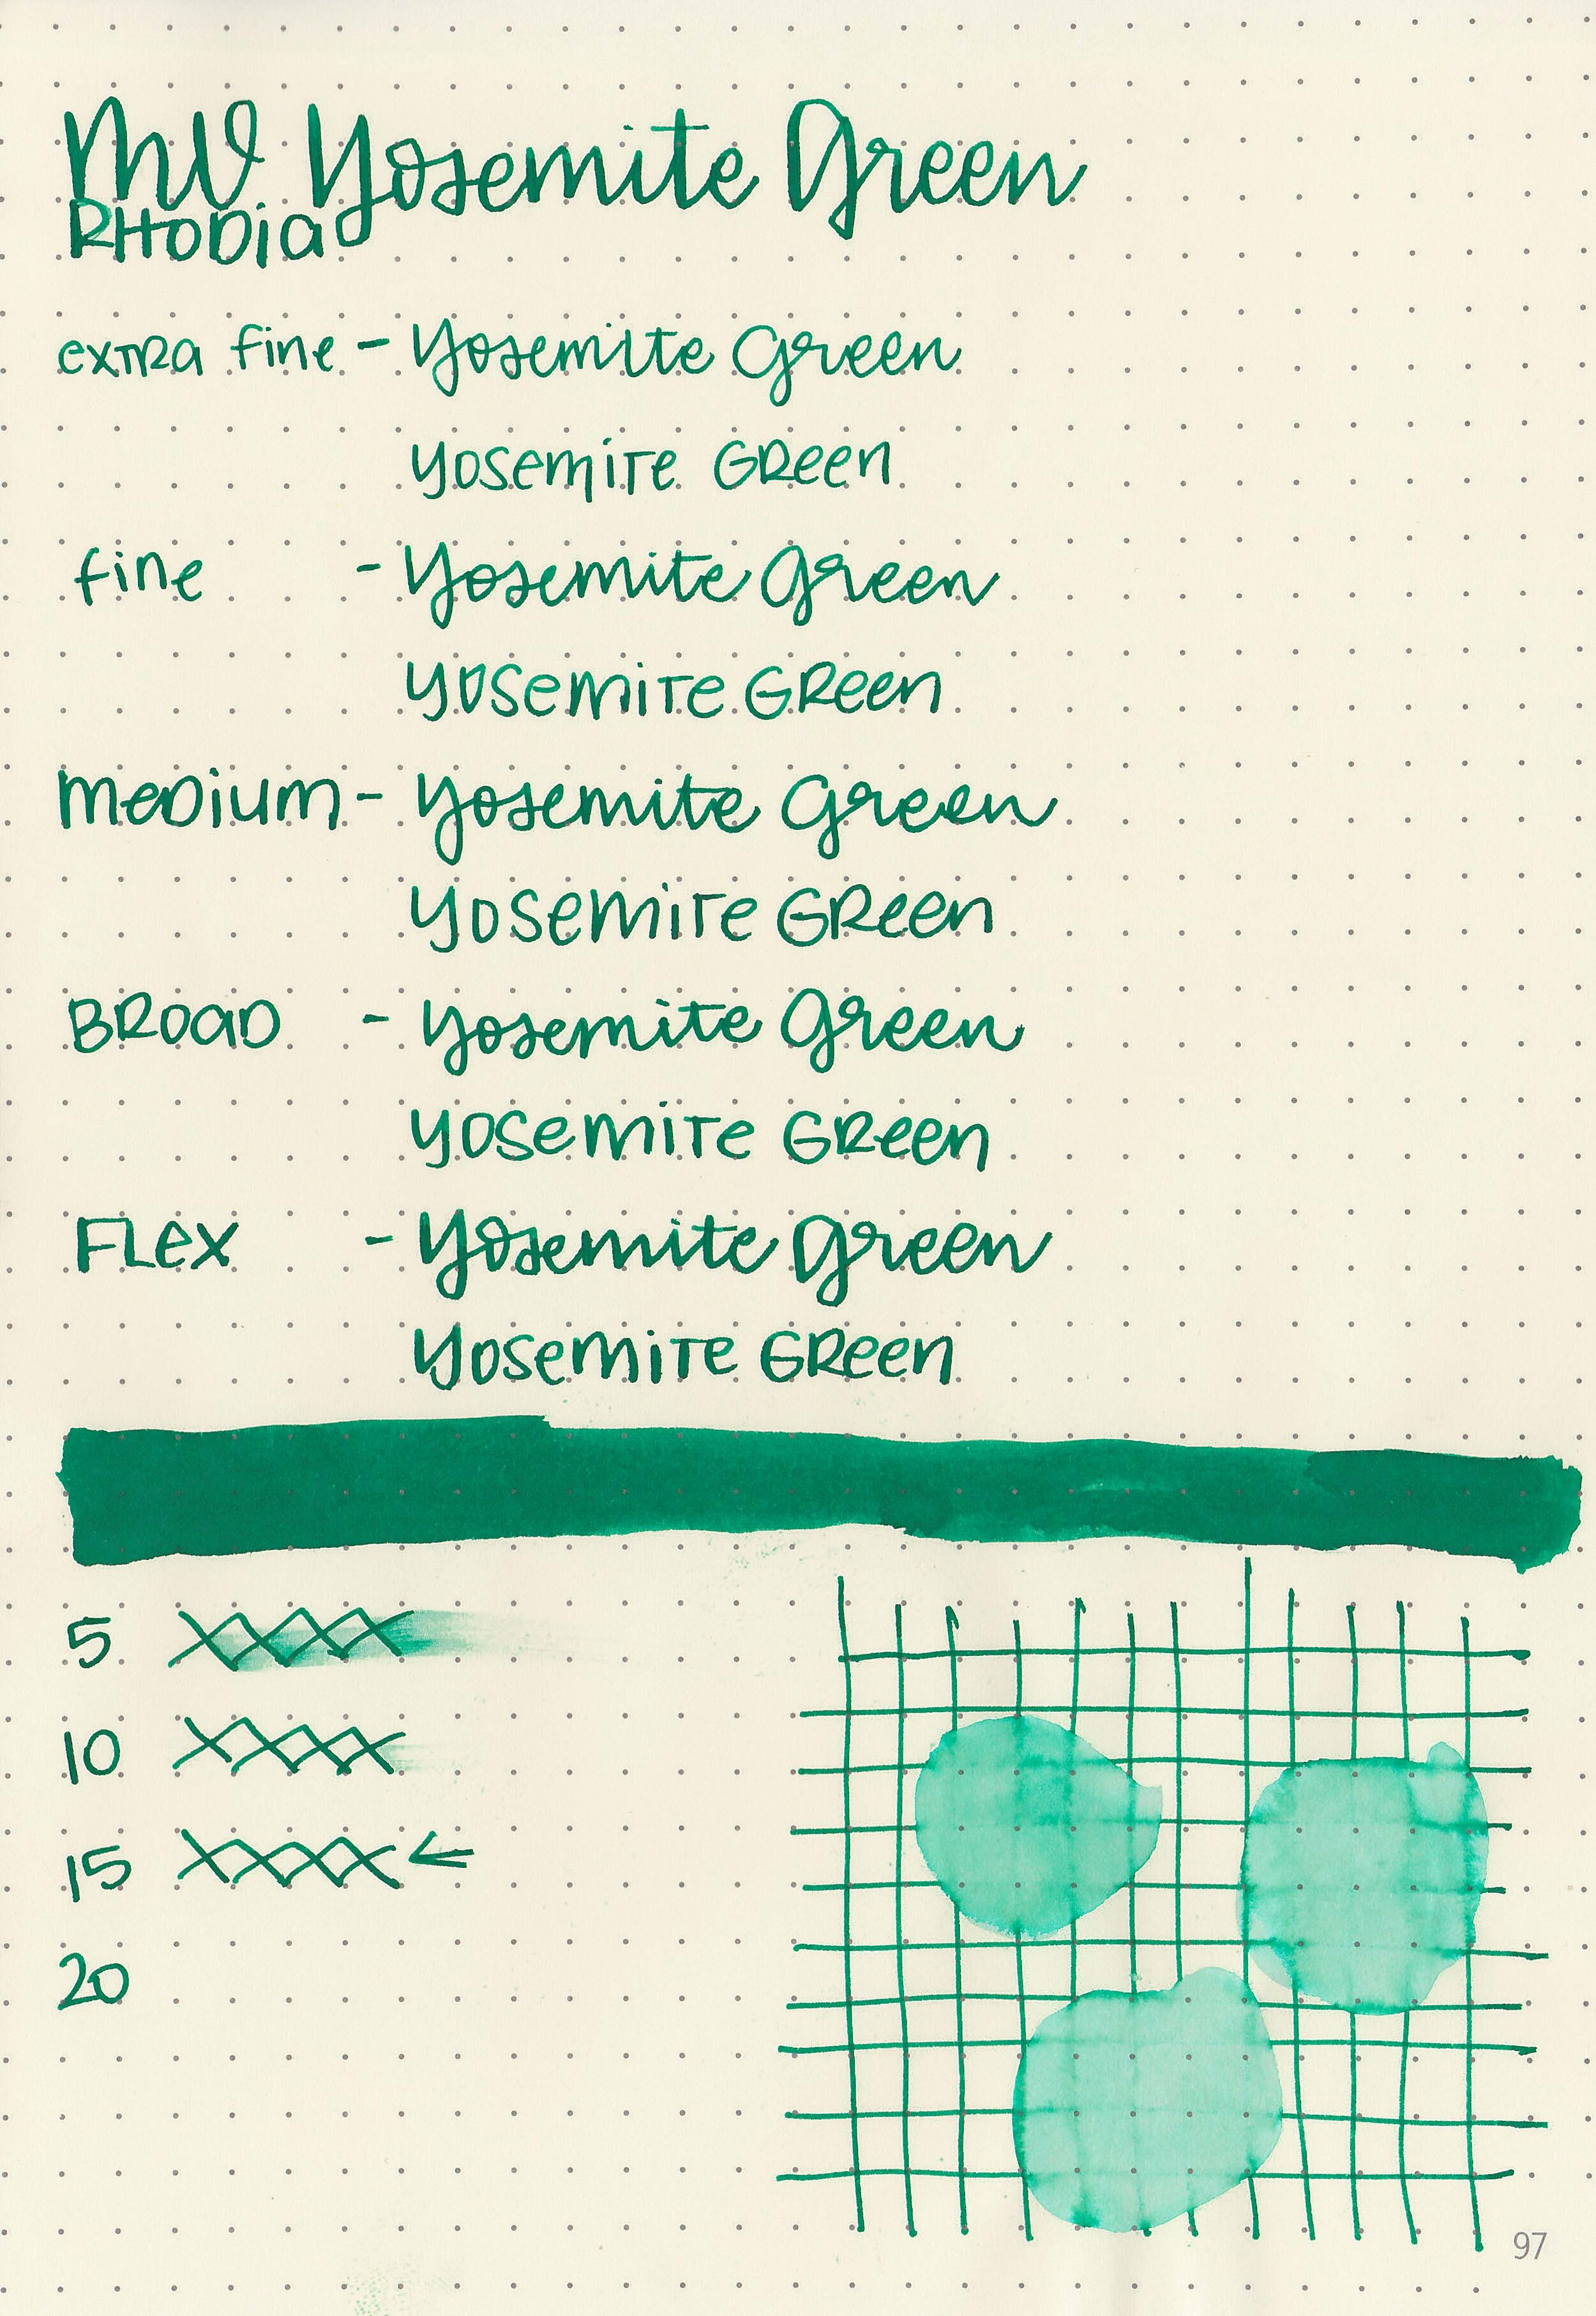 MV Yosemite Green
RHODia
exTRa fine - Yosemite Green
YoSemiTe GReen
fine - Yosemite Green
YoSemiTe GReen
meDium - Yosemite Green
YoSemiTe GReen
BRoaD - Yosemite Green
YoSemiTe GReen
FLex - Yosemite Green
YoSemiTe GReen
5 XXXX
10 XXXX
15 XXXX ←
20
97